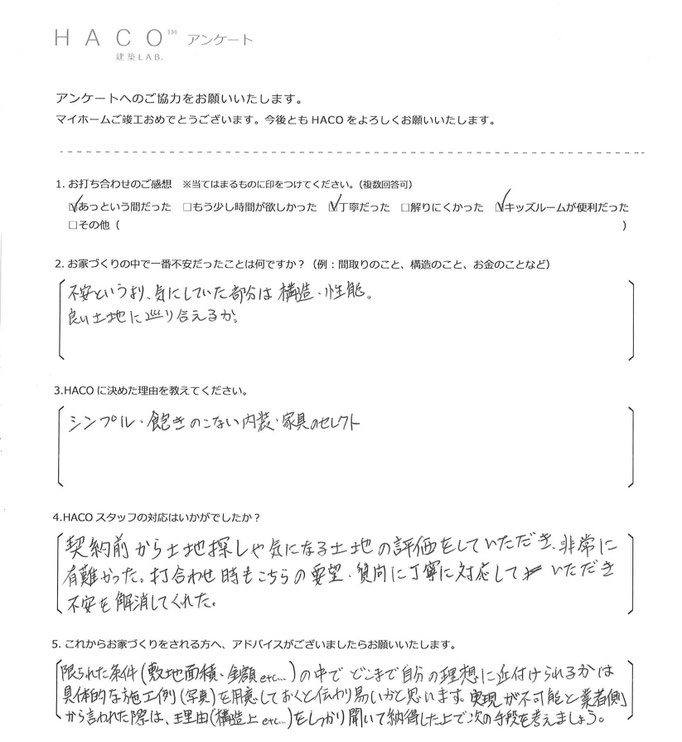 HACO™ アンケート
建築LAB.
アンケートへのご協力をお願いいたします。
マイホームご竣工おめでとうございます。今後ともHACOをよろしくお願いいたします。
1. お打ち合わせのご感想　※当てはまるものに印をつけてください。（複数回答可）
☑あっという間だった　□もう少し時間が欲しかった　☑丁寧だった　□解りにくかった　☑キッズルームが便利だった
□その他（　　　）
2. お家づくりの中で一番不安だったことは何ですか？（例：間取りのこと、構造のこと、お金のことなど）
不安というより、気にしていた部分は構造・性能。
良い土地に巡り合えるか。
3.HACOに決めた理由を教えてください。
シンプル・飽きのこない内装・家具のセレクト
4.HACOスタッフの対応はいかがでしたか？
契約前から土地探しや気になる土地の評価をしていただき、非常に
有難かった。打合わせ時もこちらの要望・質問に丁寧に対応していただき
不安を解消してくれた。
5. これからお家づくりをされる方へ、アドバイスがございましたらお願いいたします。
限られた条件(敷地面積・金額etc...)の中でどこまで自分の理想に近付けられるかは
具体的な施工例(写真)を用意しておくと伝わり易いかと思います。実現が不可能と業者側
から言われた際は、理由(構造上etc...)をしっかり聞いて納得した上で次の手段を考えましょう。